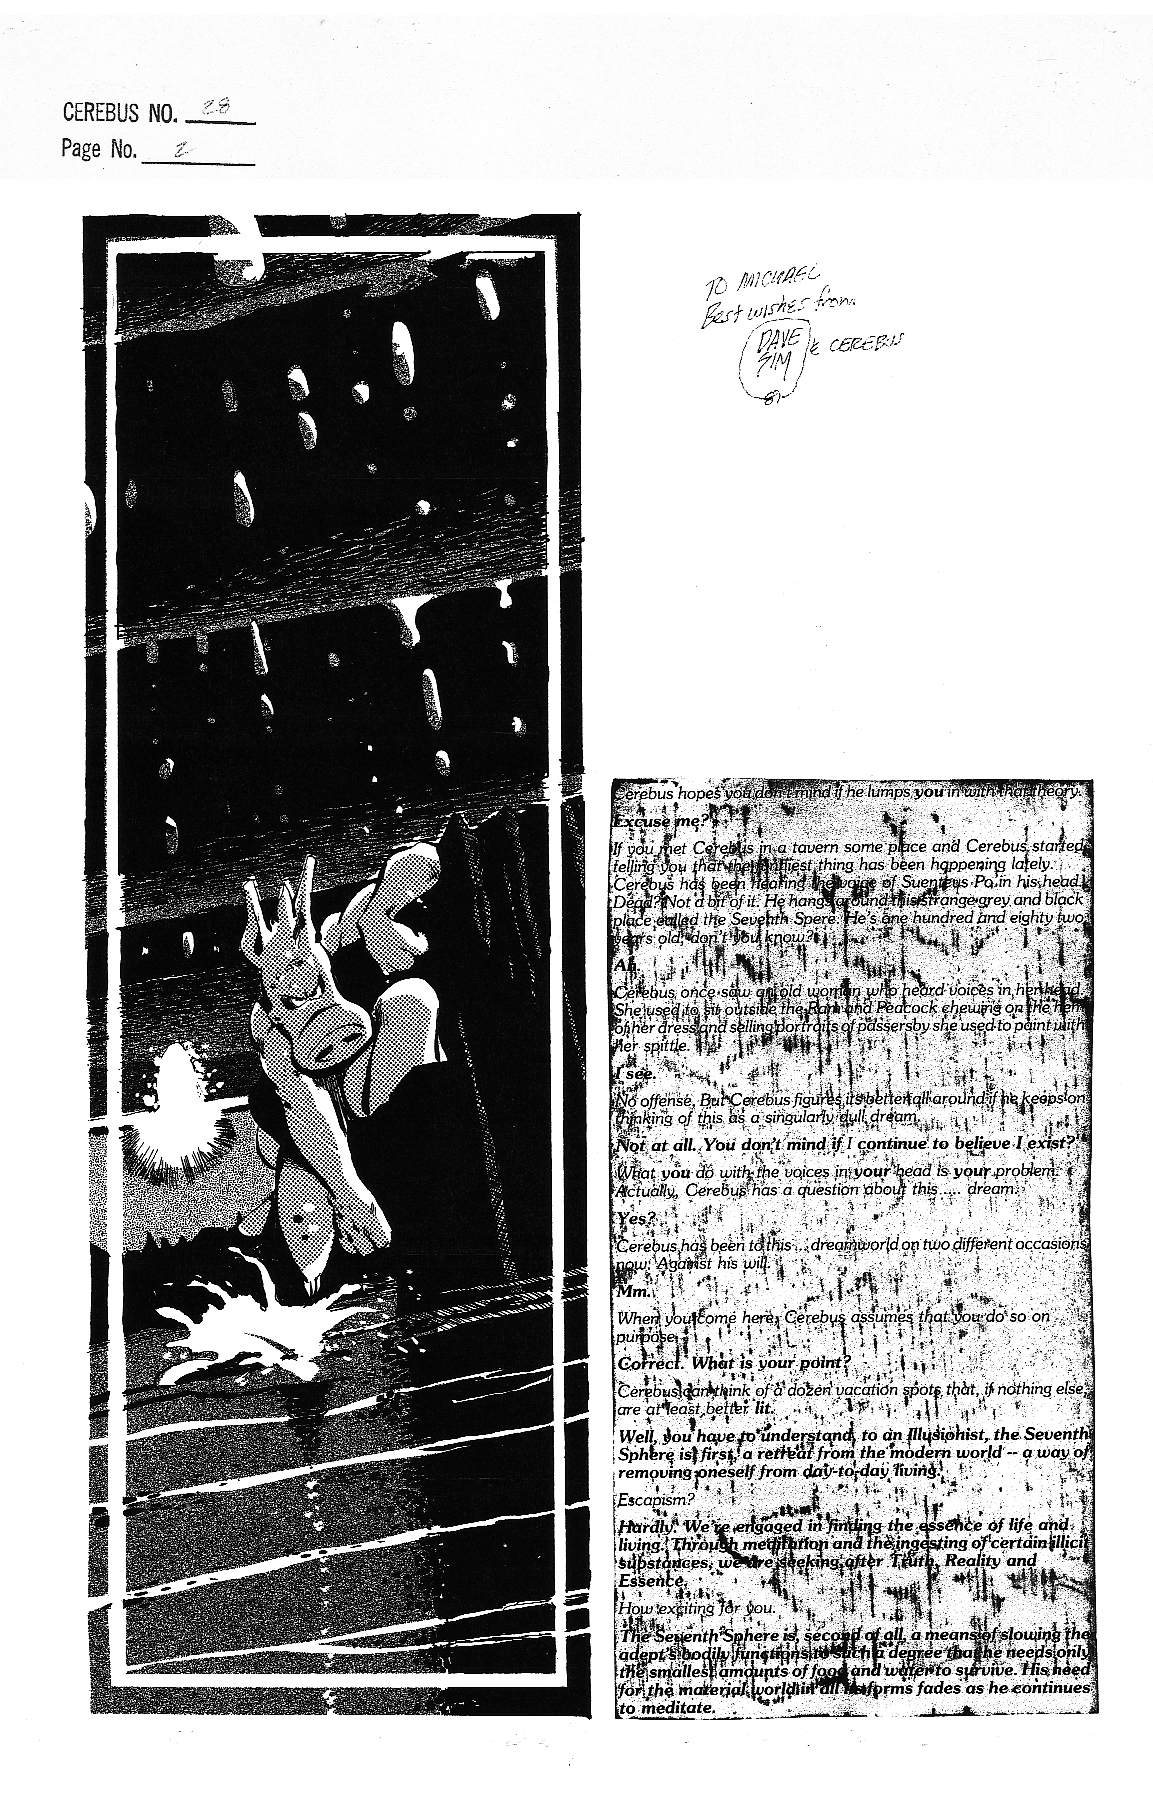 CEREBUS NO. 28
Page No. 2
TO MICHAEL
Best wishes from
DAVE
SIM
& CEREBUS
87
Cerebus hopes you don't mind if he lumps you in with that theory.
Excuse me?
If you met Cerebus in a tavern some place and Cerebus started
telling you that the funniest thing has been happening lately.
Cerebus has been hearing the voice of Suenteus Po in his head.
Dead? Not a bit of it. He hangs around this strange grey and black
place called the Seventh Spere. He's one hundred and eighty two
years old, don't you know?
Ah.
Cerebus once saw an old woman who heard voices in her head.
She used to sit outside the Ram and Peacock chewing on the hem
of her dress and selling portraits of passersby she used to paint with
her spittle.
I see.
No offense. But Cerebus figures its better all around if he keeps on
thinking of this as a singularly dull dream.
Not at all. You don't mind if I continue to believe I exist?
What you do with the voices in your head is your problem.
Actually, Cerebus has a question about this .... dream.
Yes?
Cerebus has been to this ... dreamworld on two different occasions
now. Against his will.
Mm.
When you come here, Cerebus assumes that you do so on
purpose.
Correct. What is your point?
Cerebus can think of a dozen vacation spots that, if nothing else,
are at least better lit.
Well, you have to understand, to an Illusionist, the Seventh
Sphere is, first, a retreat from the modern world -- a way of
removing oneself from day-to-day living.
Escapism?
Hardly. We're engaged in finding the essence of life and
living. Through meditation and the ingesting of certain illicit
substances, we are seeking after Truth, Reality and
Essence.
How exciting for you.
The Seventh Sphere is, second of all, a means of slowing the
adept's bodily functions to such a degree that he needs only
the smallest amounts of food and water to survive. His need
for the material world in all its forms fades as he continues
to meditate.